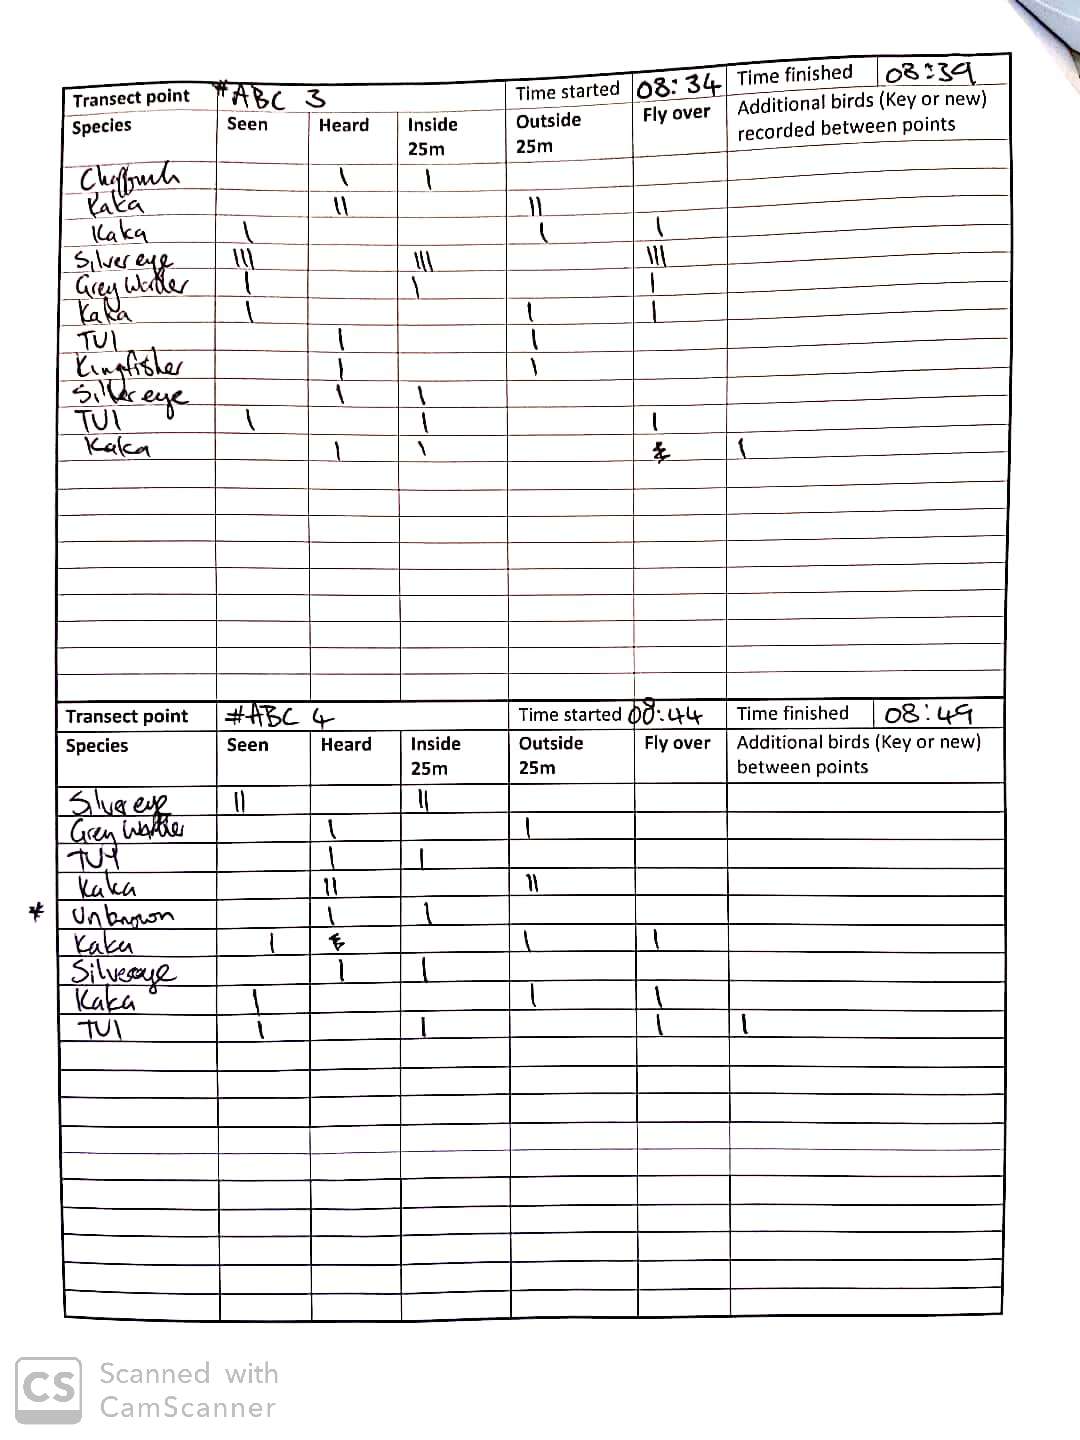 Transect point #ABC 3 Time started 08:34 Time finished 08:39
Species Seen Heard Inside 25m Outside 25m Fly over Additional birds (Key or new) recorded between points
Chaffinch | |
Kaka || ||
Kaka | | |
Silver eye ||| ||| |||
Grey Warbler | | |
Kaka | | |
TUI | |
Kingfisher | |
Silver eye | |
TUI | | |
Kaka | | |
Transect point #ABC 4 Time started 08:44 Time finished 08:49
Species Seen Heard Inside 25m Outside 25m Fly over Additional birds (Key or new) between points
Silver eye || ||
Grey Warbler | |
TUI | |
Kaka || ||
* Unknown | |
Kaka | | |
Silvereye | |
Kaka | | |
TUI | | | |
CS Scanned with
CamScanner